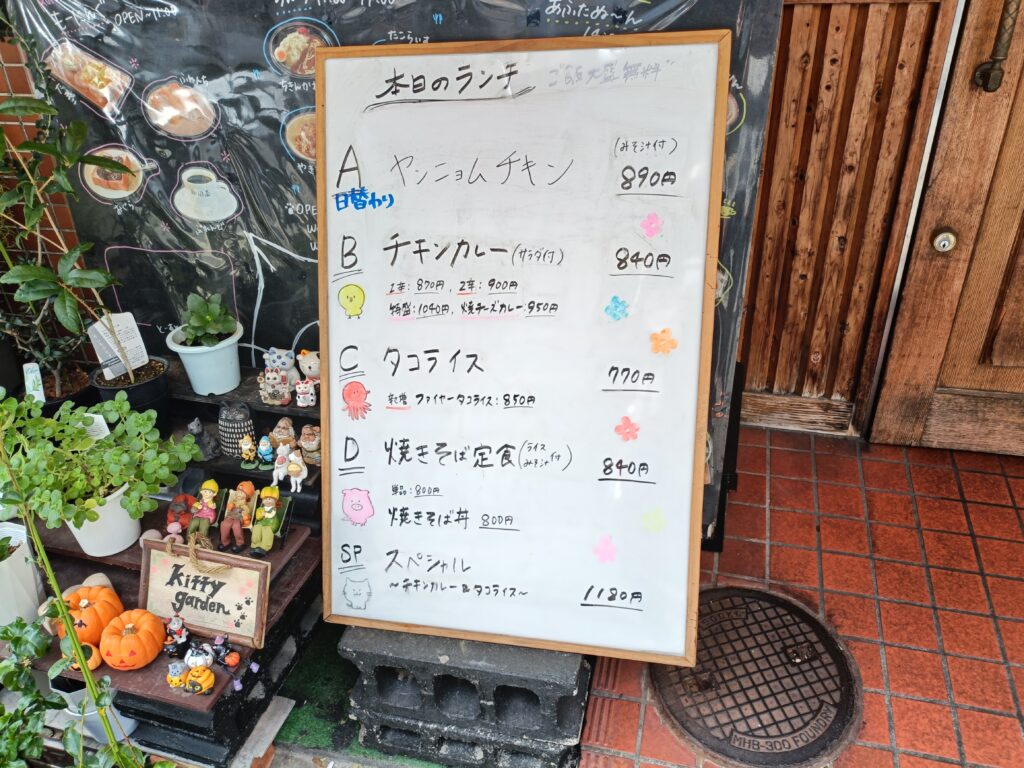 OPEN～11:00
あふためーん
たこらいす
本日のランチ
ごはん大盛無料
A ヤンニョムチキン (みそ汁付) 890円
日替わり
B チキンカレー(サラダ付) 840円
1辛:870円, 2辛:900円
特盛:1040円, 焼チーズカレー:950円
C タコライス 770円
辛増 ファイヤータコライス:850円
D 焼きそば定食(ライス みそ汁付) 840円
単品:800円
焼きそば丼 800円
SP スペシャル
～チキンカレー&タコライス～ 1180円
Kitty
garden
MHB-300 FOUNDRY